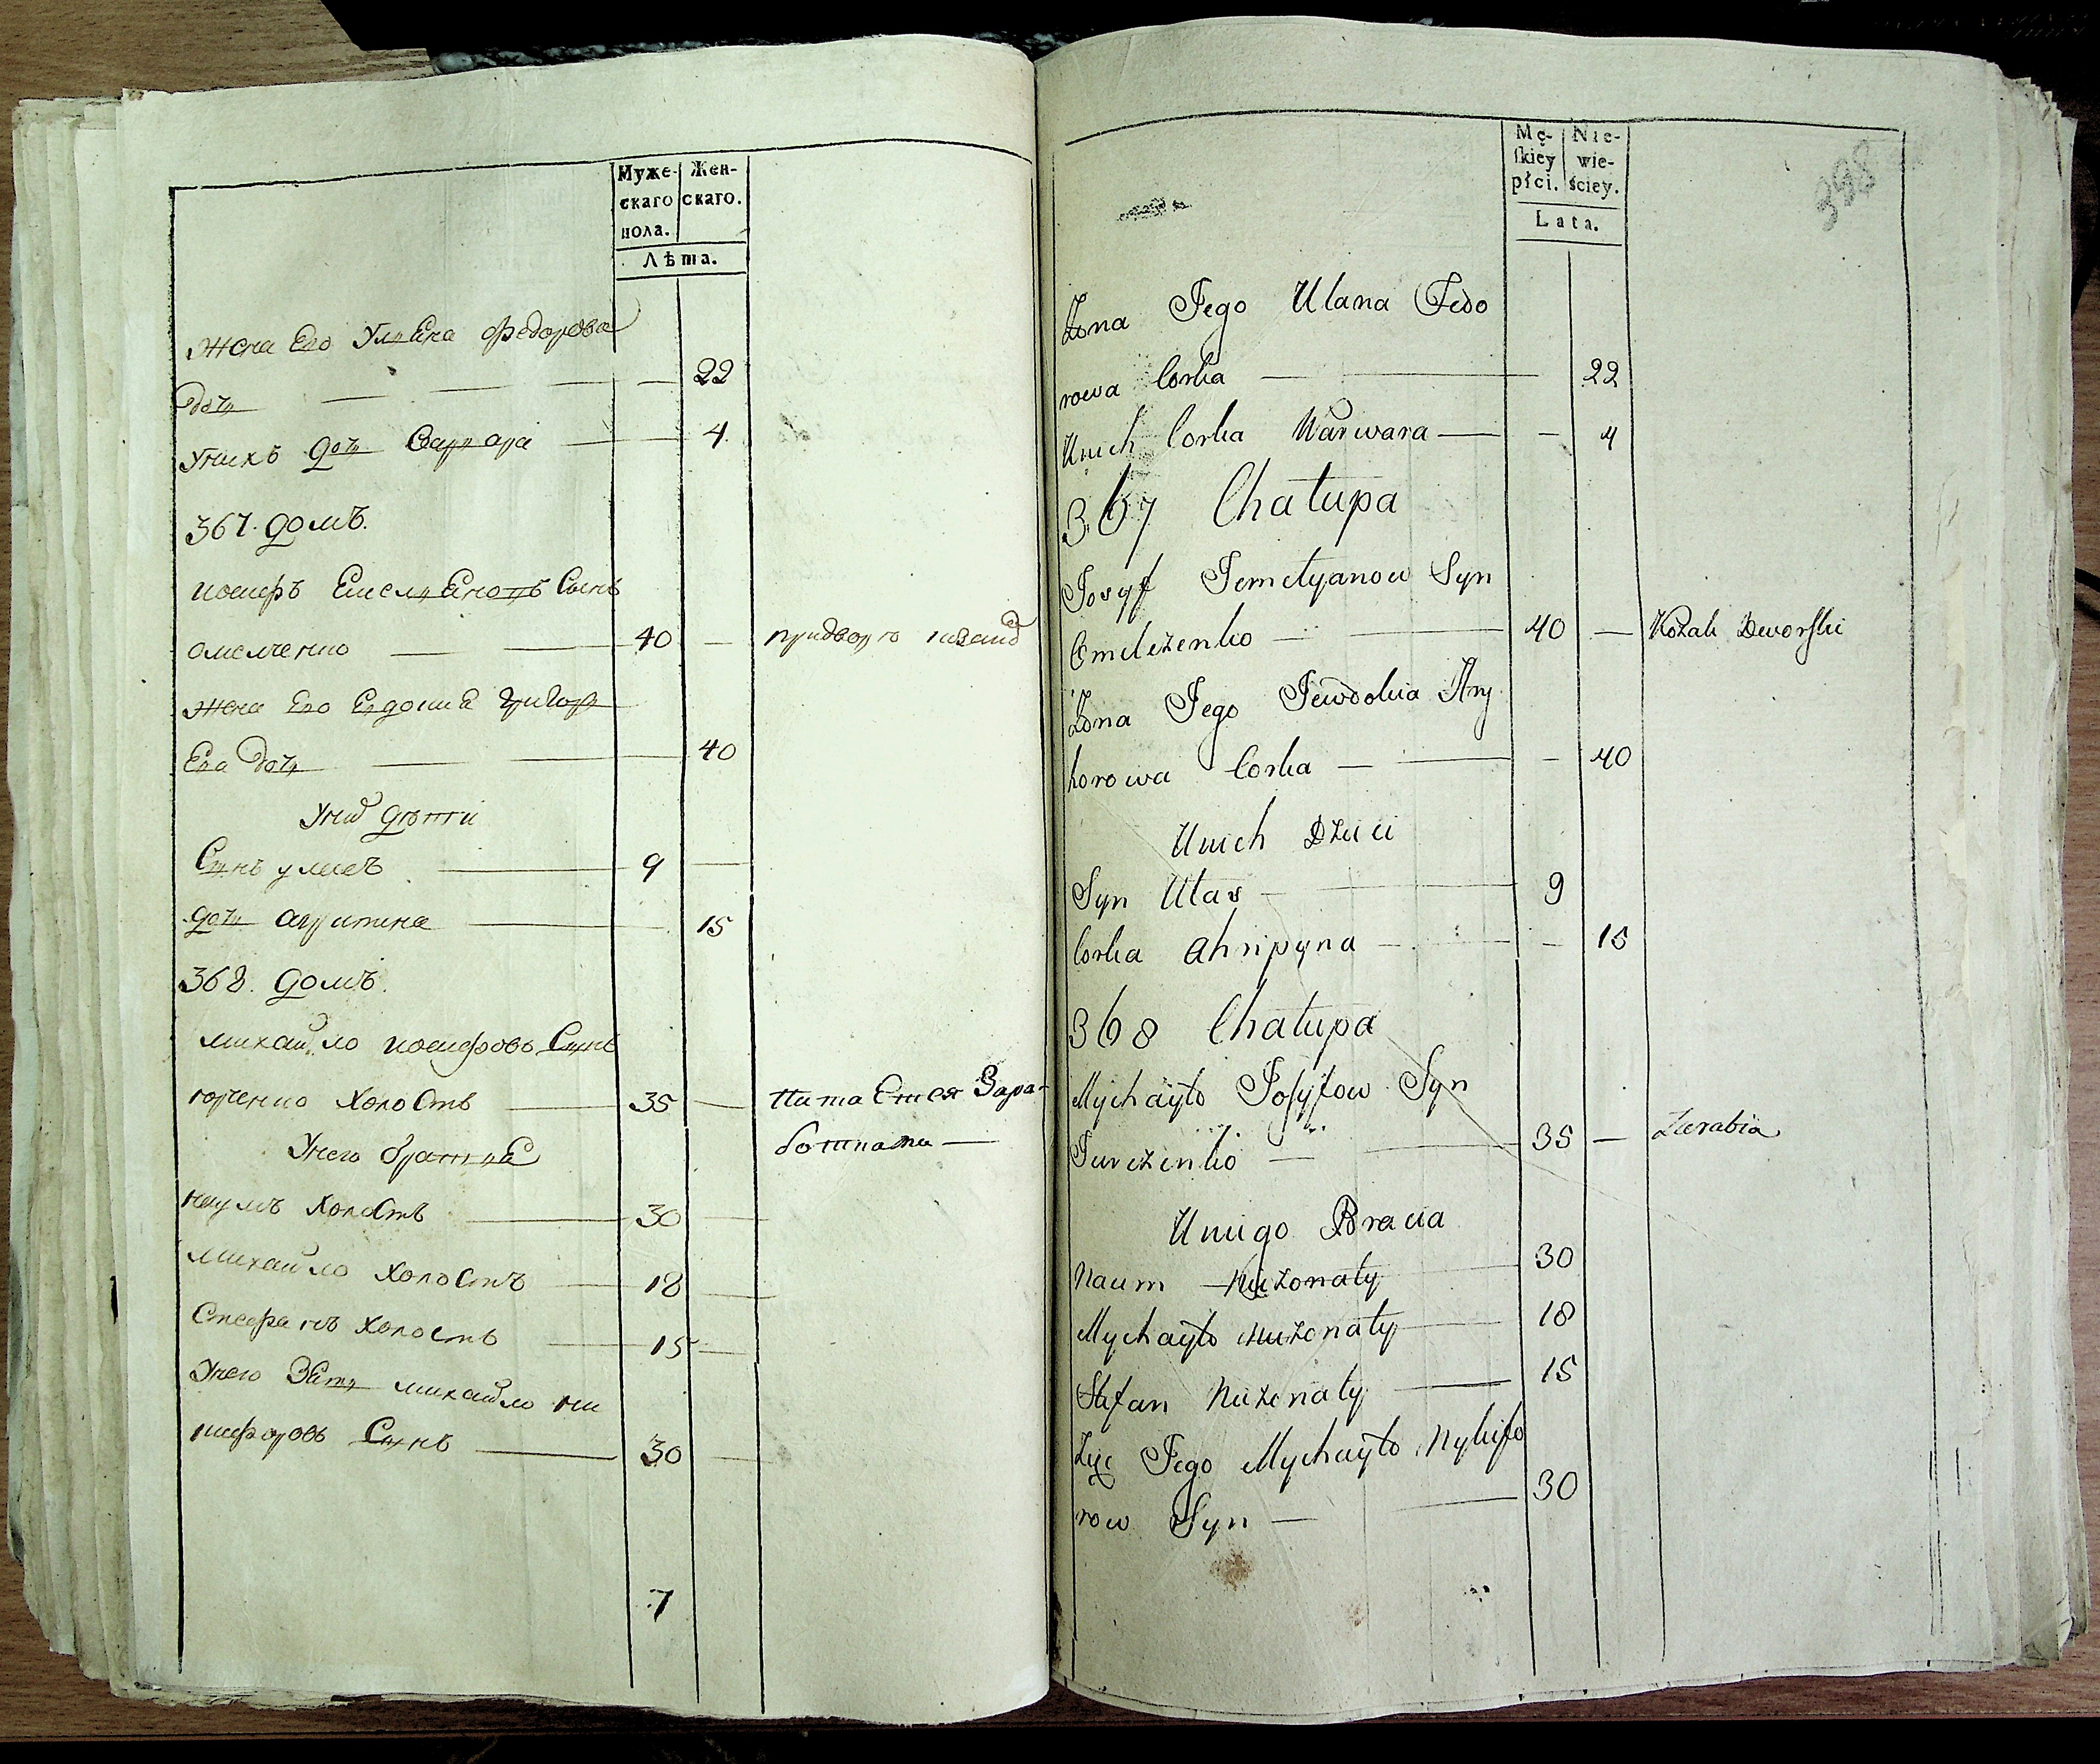 Муже-
скаго
пола.
Жен-
скаго.
Лѣта.
жена Его Улияна федорова
дочь — 22
У нихъ дочь Варвара — 4
367. домъ.
иосифъ Емелияновъ Сынъ
омелченко — 40 —
жена Его Евдокиа григор
Ева дочь — 40
У них дѣтти
Сынъ улиасъ — 9 —
дочь агрипина — 15
368. домъ.
михайло иосифовъ Сынъ
юрченко холостъ — 35 — питается Зара-
У него братиа ботками —
наумъ холостъ — 30 —
михайло холостъ — 18 —
стефанъ холостъ — 15 —
У него Зять михайло ни
кифоровъ Сынъ — 30 —
7
Mę-
skiey
płci.
Nie-
wie-
ściey.
Lata.
398
Żona Jego Ulana Fedo
rowa Corka — 22
Unich Corka Warwara — - 4
367 Chałupa
Josyf Jemelyanow Syn
Omelczenko — 40 — Kozak Dworski
Żona Jego Jewdokia Hry
horowa Corka — - 40
Unich Dzieci
Syn Ulas — 9
Corka Ahripyna — - 15
368 Chałupa
Mychayło Josyfow Syn
Jurczenko — 35 — Zarabia
Uniego Bracia
Naum Nieżonaty 30
Mychayło Nieżonaty — 18
Stefan Nieżonaty — 15
Zięć Jego Mychayło Nykifo
row Syn — 30